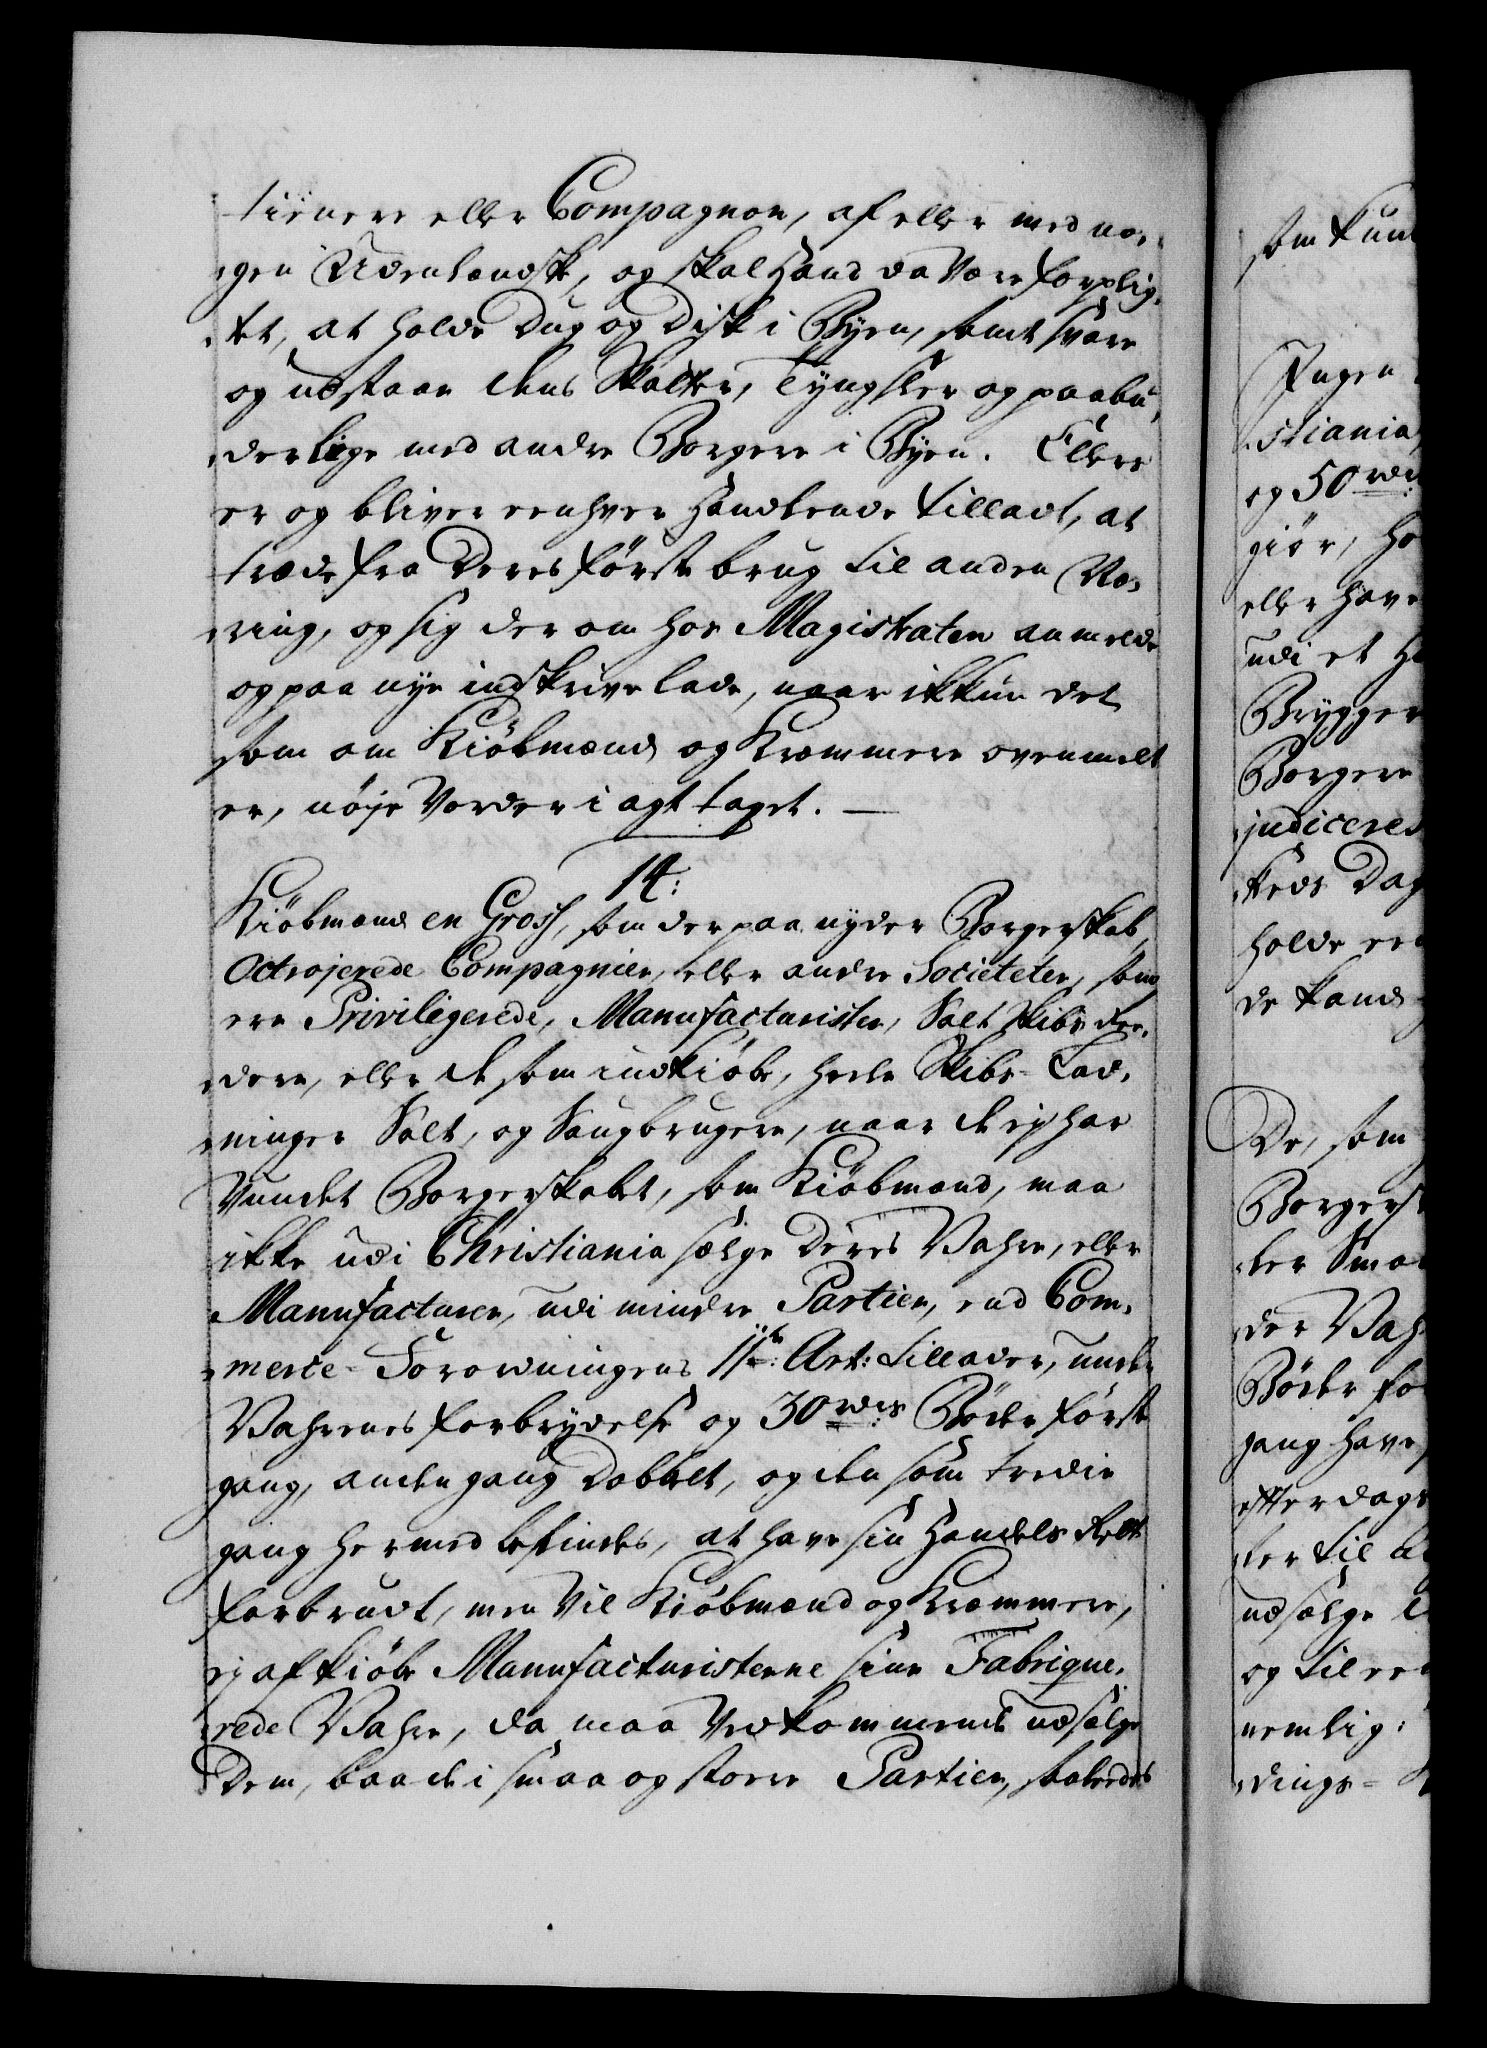 tiener eller Compagnon, af eller med no-
gen Udenlandsk, og skal Hand da være forplig-
tet, at holde Dug og Disk i Byen, samt svare
og udstaae dens Skatter, Tyngsler og paabu-
der lige med andre Borgere i Byen. Ellers
er og bliver eenhver Handlende tilladt, at
træde fra Deres første brug til anden Næ-
ring, og sig der om hos Magistraten anmelde
og paa nye indskrive lade, naar ikkun det
som om Kiøbmænd og Kræmmere ovenmelt
er, nøje vorder i agt taget. —
14:
Kiøbmænd en Gross, som der paa nyder Borgerskab,
Octrojerede Compagnier, eller andre Societeter, som
ere Privilegerede, Manufacturister, Salt Skibs Ree-
dere, eller de som indkiøbe, heele Skibs-Lad-
ninger Salt, og Saugbrugere, naar de ej har
vundet Borgerskabet, som Kiøbmænd, maa
ikke udi Christiania sælge Deres Vahre, eller
Manufacturer, udi mindre Partier, end Com-
merce-Forordningens 11te Art: tillader, under
Vahrenes forbrydelse og 30 rdrs Bøder første
gang, anden gang Dobbelt, og den som tredie
gang hermed befindes, at have sin Handels Rett
forbrudt, men vil Kiøbmænd og Kræmmere,
ej afkiøbe Manufacturisterne sine Fabrique-
rede Vahre, da maa vedkommende udsælge
Dem, baade i smaa og store Partier, saaledes
som kund
Ingen
stiania
og 50 rdr
giør, ha
eller have
udi et H
Brygger
Borgere
judiceres
keds Dag
holde een
de kand
De, som
Borgersk
der Smaa
der Vah
Bøder fo
gang have
efter dags
der til b
udsælge
og til een
nemlig:
dings=